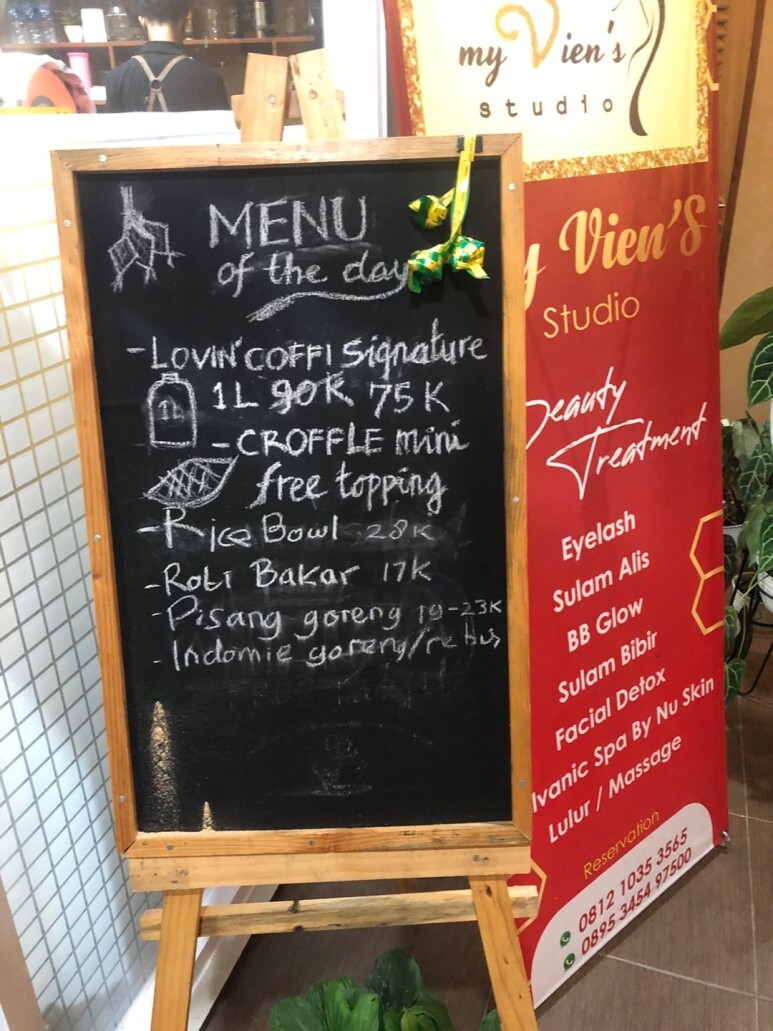 MENU
of the day
- LOVIN' COFFI Signature
1L
1L 90K 75K
- CROFFLE mini
free topping
- Rice Bowl 28K
- Roti Bakar 17K
- Pisang goreng 19-23K
- Indomie goreng/rebus
my Vien's
studio
Vien'S
Studio
Beauty
Treatment
Eyelash
Sulam Alis
BB Glow
Sulam Bibir
Facial Detox
lvanic Spa By Nu Skin
Lulur / Massage
Reservation
0812 1035 3565
0895 3454 97500